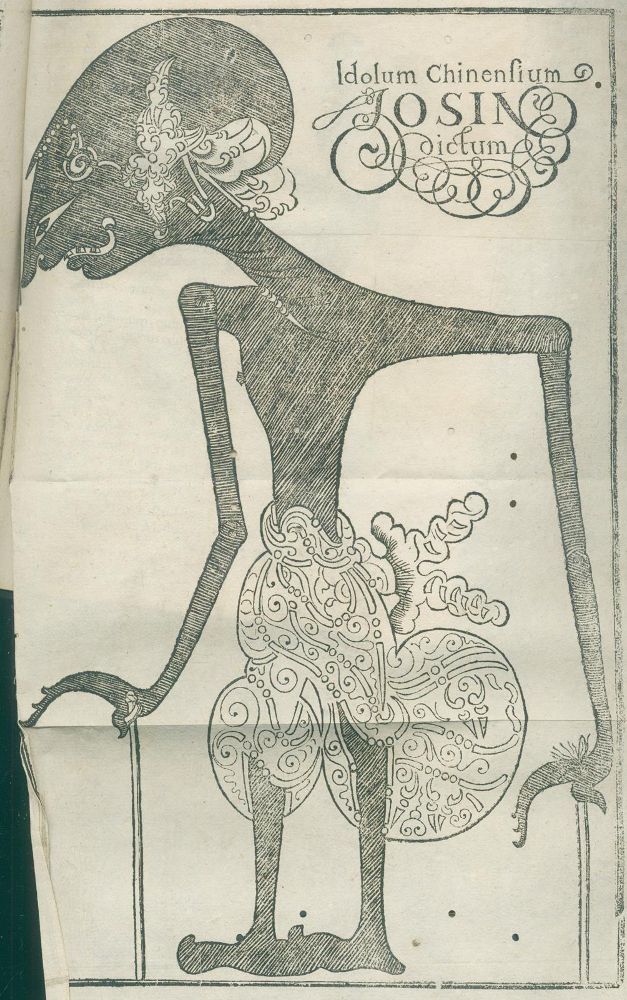 Idolum Chinenſium
JOSIN
dictum